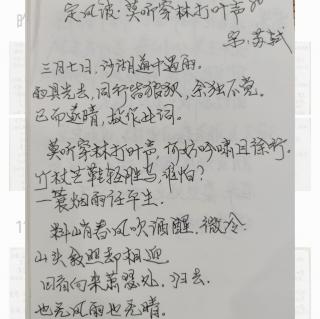 定风波·莫听穿林打叶声
宋·苏轼
三月七日，沙湖道中遇雨。
雨具先去，同行皆狼狈，余独不觉。
已而遂晴，故作此词。
莫听穿林打叶声，何妨吟啸且徐行。
竹杖芒鞋轻胜马，谁怕？
一蓑烟雨任平生。
料峭春风吹酒醒，微冷
山头斜照却相迎
回首向来萧瑟处，归去
也无风雨也无晴。